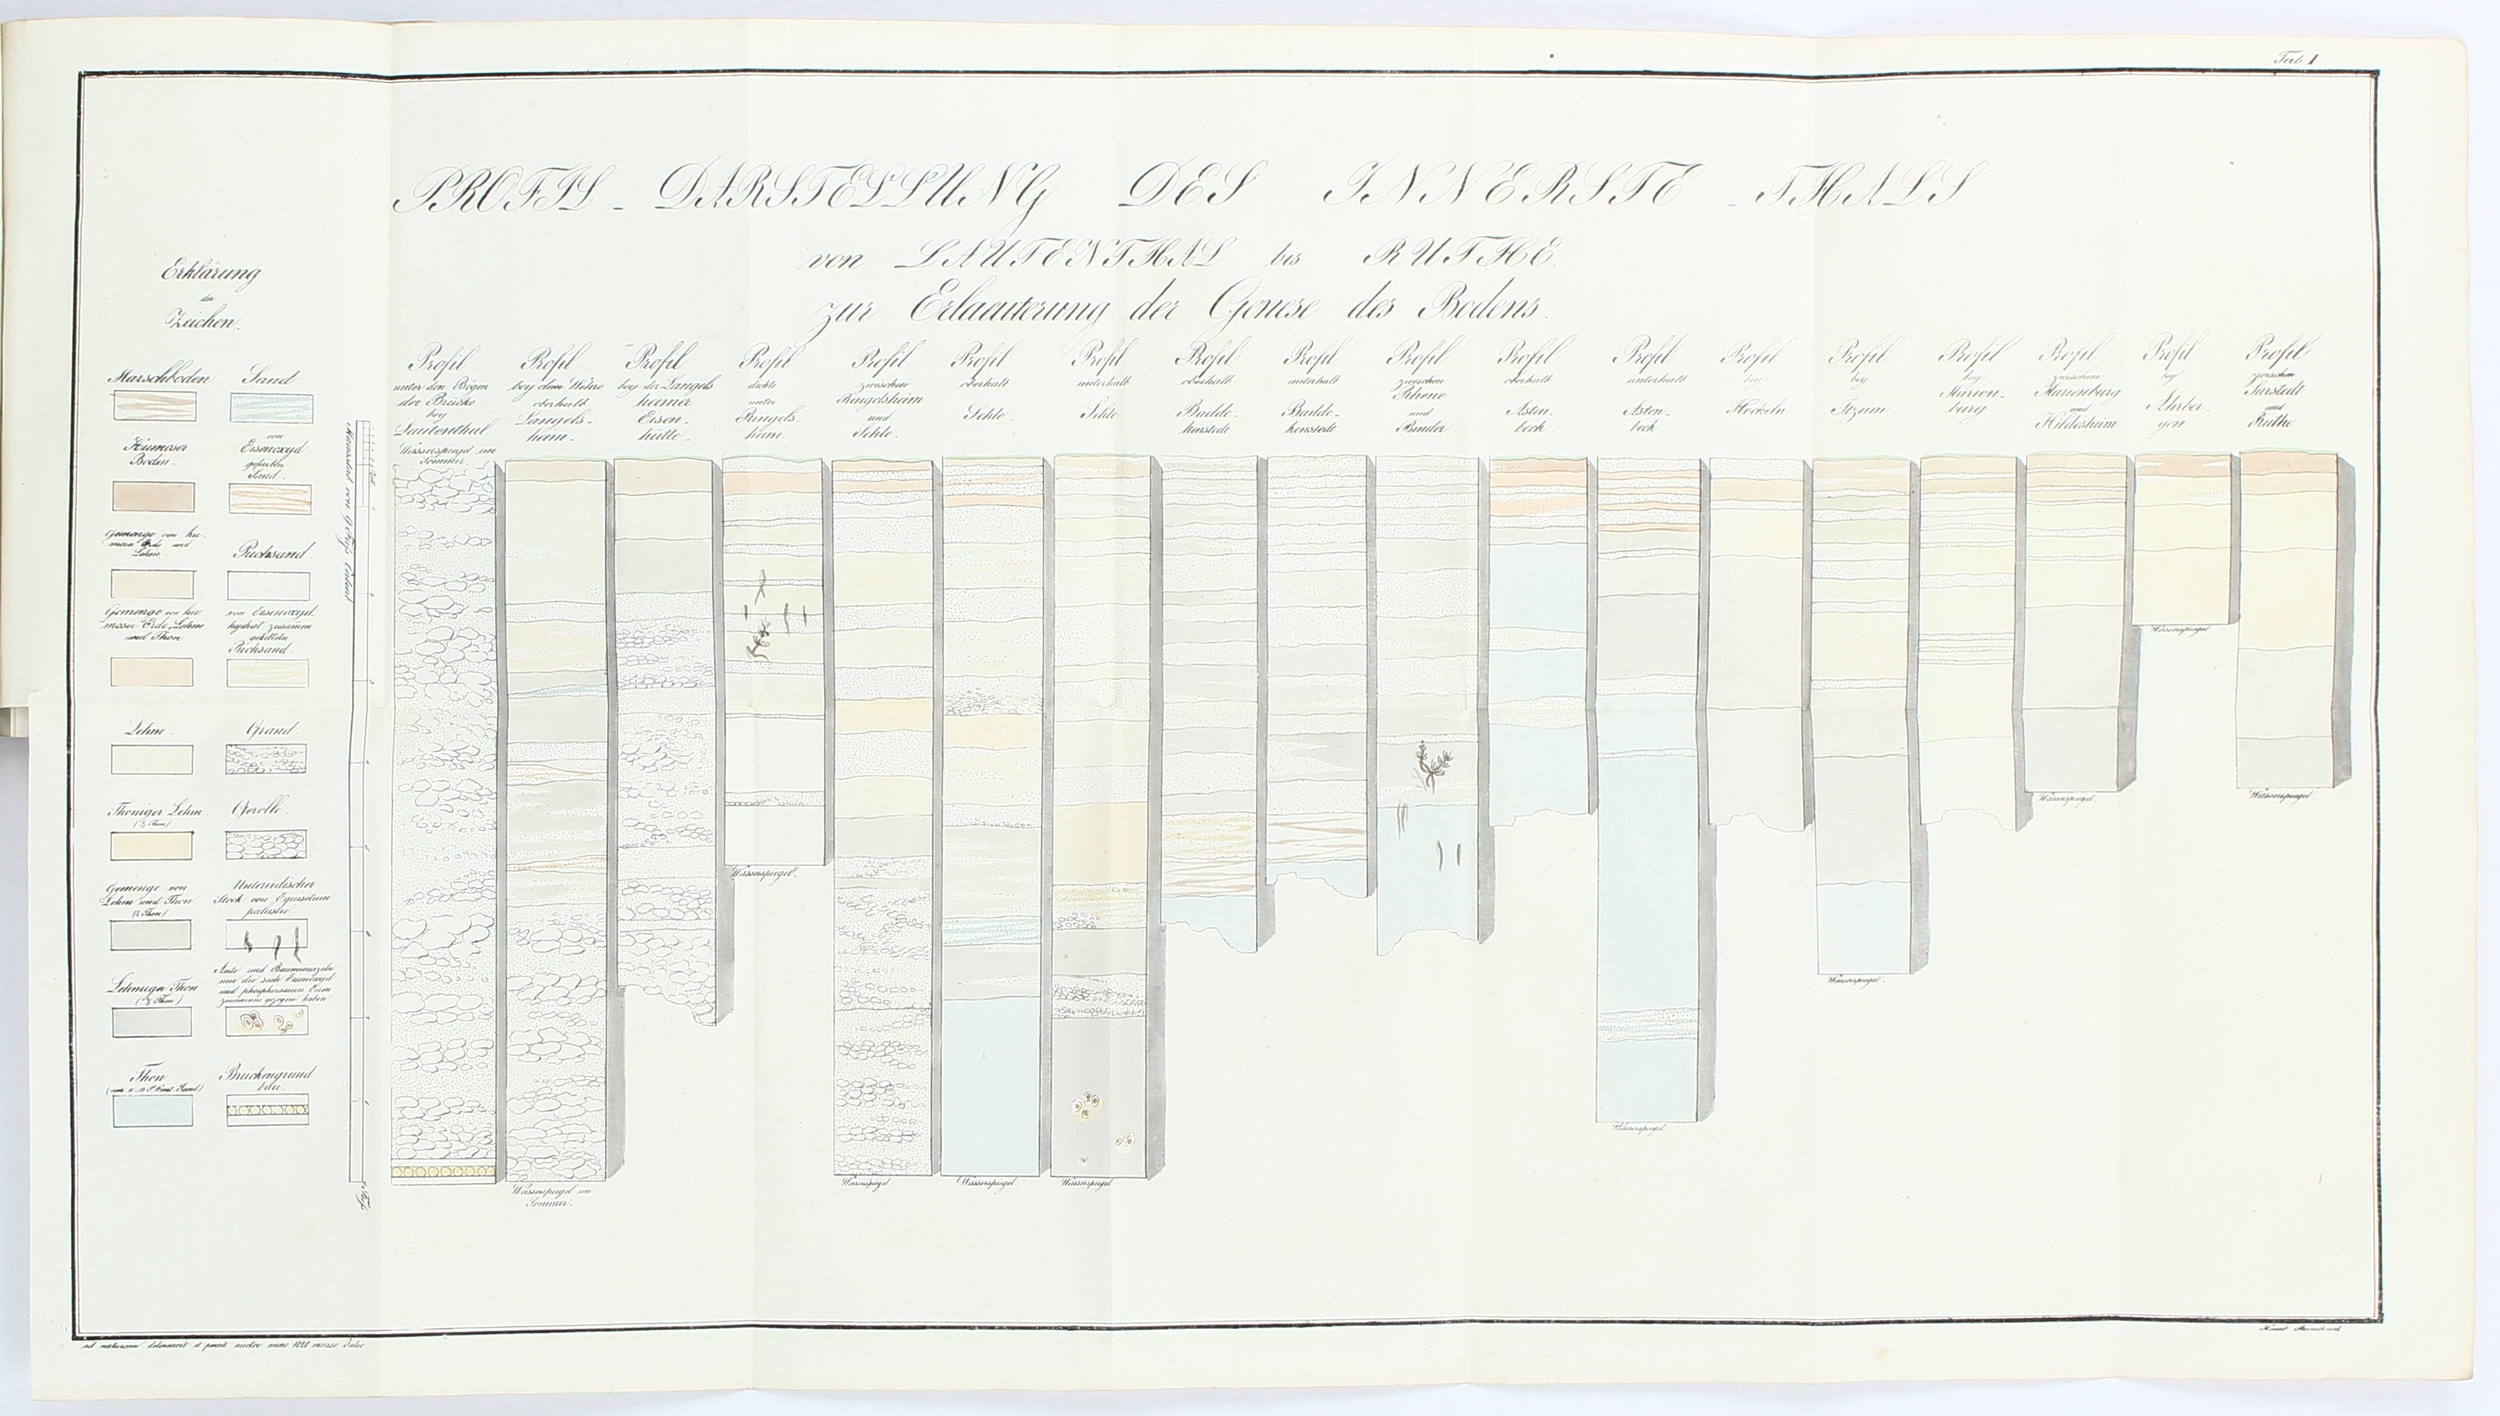 Tab. I
PROFIL - DARSTELLUNG DES INNERSTE - THALS
von LAUTENTHAL bis RUTHE
zur Erlaeuterung der Genese des Bodens.
Erklärung
der
Zeichen.
Marschboden
Humoser
Boden.
Gemenge von hu-
moser Erde und
Lehm
Gemenge von hu-
moser Erde, Lehm
und Thon
Lehm.
Thoniger Lehm
Gemenge von
Lehm und Thon
Lehmiger Thon
Thon
Sand.
von
Eisenoxyd
gefärbter
Sand.
Puchsand
von Eisenoxyd-
hydrat zusammen
gekitteter
Puchsand.
Grand.
Gerolle.
Unterirdischer
Stock von Equisetum
palustre.
Aeste und Baumwurzeln
um die sich Eisenoxyd
und phosphorsaures Eisen
zusammen gezogen haben
Bruckengrund
bau.
Profil
unter den Bögen
der Brücke
bey
Lautenthal
Wasserspiegel im
Sommer.
Profil
bey dem Wehre
oberhalb
Langels-
heim.
Profil
bey der Langels
heimer
Eisen-
hütte.
Profil
dichte
unter
Ringels-
heim.
Profil
zwischen
Ringelsheim
und
Sehlde.
Profil
oberhalb
Sehlde.
Profil
unterhalb
Sehlde
Profil
oberhalb
Badde-
kenstedt
Profil
unterhalb
Badde-
kenstedt.
Profil
zwischen
Rhene
und
Binder.
Profil
oberhalb
Asten-
beck.
Profil
unterhalb
Asten-
beck
Profil
bey
Hockeln
Profil
bey
Itzum
Profil
bey
Marien-
burg
Profil
zwischen
Marienburg
und
Hildesheim
Profil
bey
Ahrber-
gen
Profil
zwischen
Sarstedt
und
Ruthe
Wasserspiegel im
Sommer.
Wasserspiegel.
Wasserspiegel
Wasserspiegel
Wasserspiegel
Wasserspiegel
Wasserspiegel.
Wasserspiegel
Wasserspiegel
Wasserspiegel
ad naturam delineavit et pinxit auctor anno 1826 mense Julio